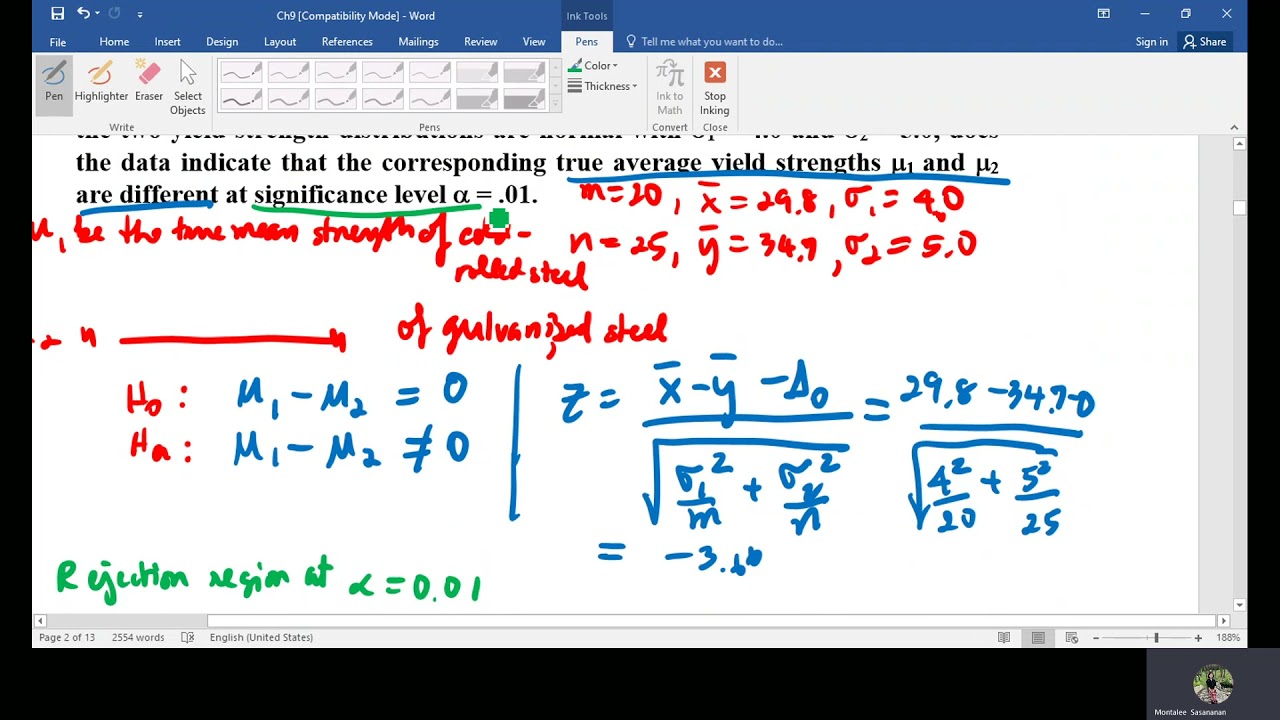 Ch9 [Compatibility Mode] - Word
Ink Tools
File Home Insert Design Layout References Mailings Review View Pens Tell me what you want to do... Sign in Share
Pen Highlighter Eraser Select Objects
Color
Thickness
Ink to Math
Stop Inking
Write Pens Convert Close
the two yield strength distributions are normal with σ1 = 4.0 and σ2 = 5.0, does
the data indicate that the corresponding true average yield strengths μ1 and μ2
are different at significance level α = .01.
m=20, x̄ = 29.8, σ1 = 4.0
μ1 be the true mean strength of cold-
n = 25, ȳ = 34.7, σ2 = 5.0
rolled steel
" " of galvanized steel
H0 : μ1 - μ2 = 0
Ha : μ1 - μ2 ≠ 0
z = (x̄ - ȳ - Δ0) / √(σ1²/m + σ2²/n) = (29.8 - 34.7 - 0) / √(4²/20 + 5²/25)
= -3.66
Rejection region at α = 0.01
Page 2 of 13 2554 words English (United States) 188%
Montalee Sasananan